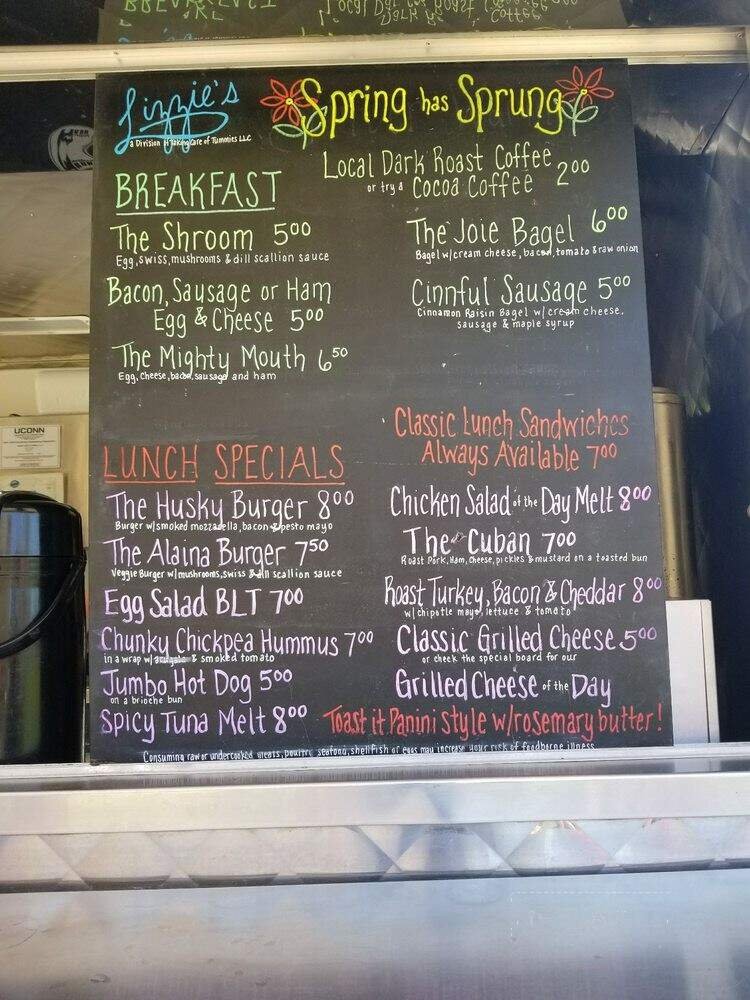 Lizzie's
a Division of Taking Care of Tummies LLC
Spring has Sprung
Local Dark Roast Coffee
or try a Cocoa Coffee 2.00
BREAKFAST
The Shroom 5.00
Egg, swiss, mushrooms & dill scallion sauce
Bacon, Sausage or Ham
Egg & Cheese 5.00
The Mighty Mouth 6.50
Egg, cheese, bacon, sausage and ham
The Joie Bagel 6.00
Bagel w/cream cheese, bacon, tomato & raw onion
Cinnful Sausage 5.00
Cinnamon Raisin Bagel w/ cream cheese.
sausage & maple syrup
UCONN
LUNCH SPECIALS
The Husky Burger 8.00
Burger w/smoked mozzarella, bacon & pesto mayo
The Alaina Burger 7.50
Veggie Burger w/mushrooms, swiss & dill scallion sauce
Egg Salad BLT 7.00
Chunky Chickpea Hummus 7.00
in a wrap w/ & smoked tomato
Jumbo Hot Dog 5.00
on a brioche bun
Spicy Tuna Melt 8.00
Classic Lunch Sandwiches
Always Available 7.00
Chicken Salad of the Day Melt 8.00
The Cuban 7.00
Roast Pork, Ham, Cheese, pickles & mustard on a toasted bun
Roast Turkey, Bacon & Cheddar 8.00
w/ chipotle mayo, lettuce & tomato
Classic Grilled Cheese 5.00
or check the special board for our
Grilled Cheese of the Day
Toast it Panini style w/rosemary butter!
Consuming raw or undercooked meats, poultry, seafood, shellfish or eggs may increase your risk of foodborne illness